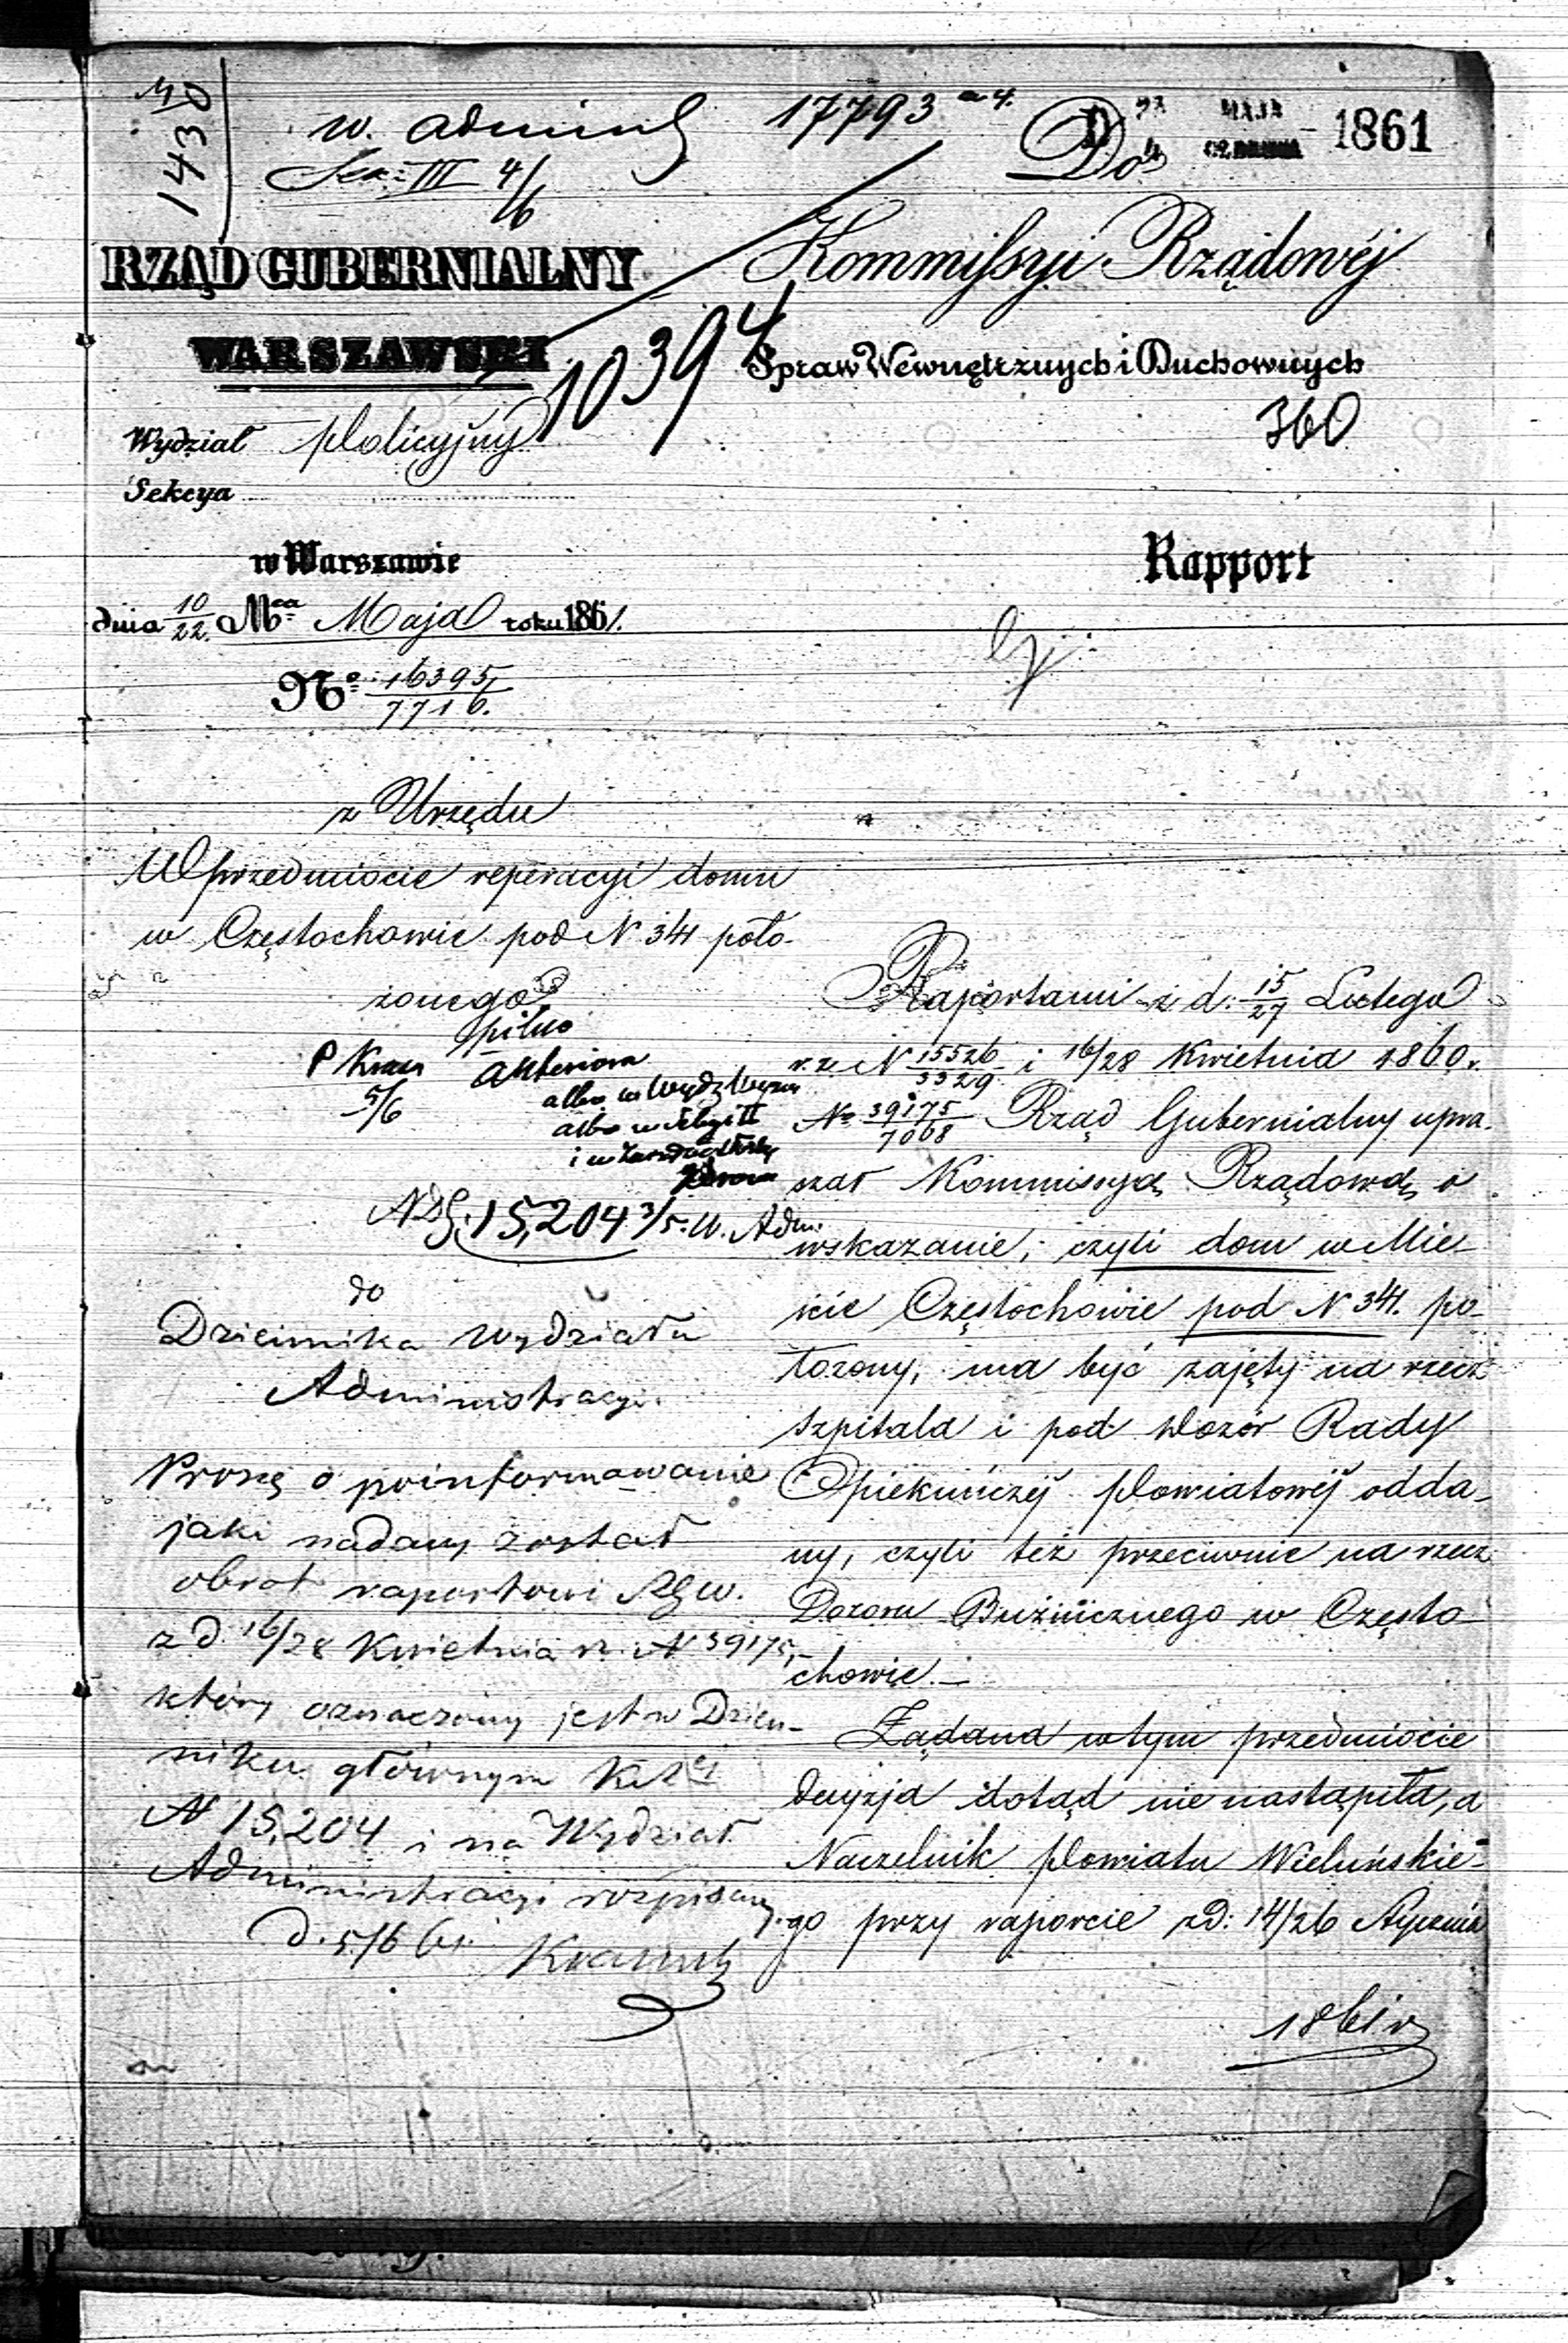 1430
w. admin
17793
Do
MAJA
1861
Sek. III 4/6
RZĄD GUBERNIALNY
WARSZAWSKI
10394
Kommissyi Rządowéj
Spraw Wewnętrznych i Duchownych
360
Wydział Policyjny
Sekcya
w Warszawie
Rapport
dnia 10/22 Mca Maja roku 1861.
No 16395/7716.
z Urzędu
W przedmiocie reperacyi domu
w Częstochowie pod N 341 poło-
żonego
pilno
P Kraus
5/6
Anteriora
albo w Wydz
albo w
N DG. 15,204 3/5. W. Adm.
do
Dziennika Wydziału
Administracyi.
Proszę o poinformowanie
jaki nadany został
obrot raportowi RGW.
z d. 16/28 Kwietnia r. N 39175,
który oznaczony jest w Dzien-
niku głównym
N 15,204 i na Wydział
Administracyi rozpisany.
d. 5/6 61.
Raportami z d. 15/27 Lutego
r. z. N 15526/3329. i 16/28 Kwietnia 1860 r.
No 39175/7068 Rząd Gubernialny upra-
szał Kommissyą Rządową o
wskazanie, czyli dom w Mie-
ście Częstochowie pod N 341. po-
łożony, ma być zajęty na rzecz
szpitala i pod dozór Rady
Opiekuńczéj Powiatowéj odda-
ny, czyli też przeciwnie na rzecz
Dozoru Bużnicznego w Często-
chowie.—
Żądana w tym przedmiocie
decyzja dotąd nie nastąpiła, a
Naczelnik Powiatu Wieluńskie-
go przy raporcie z d: 14/26 Stycznia
1861 r.